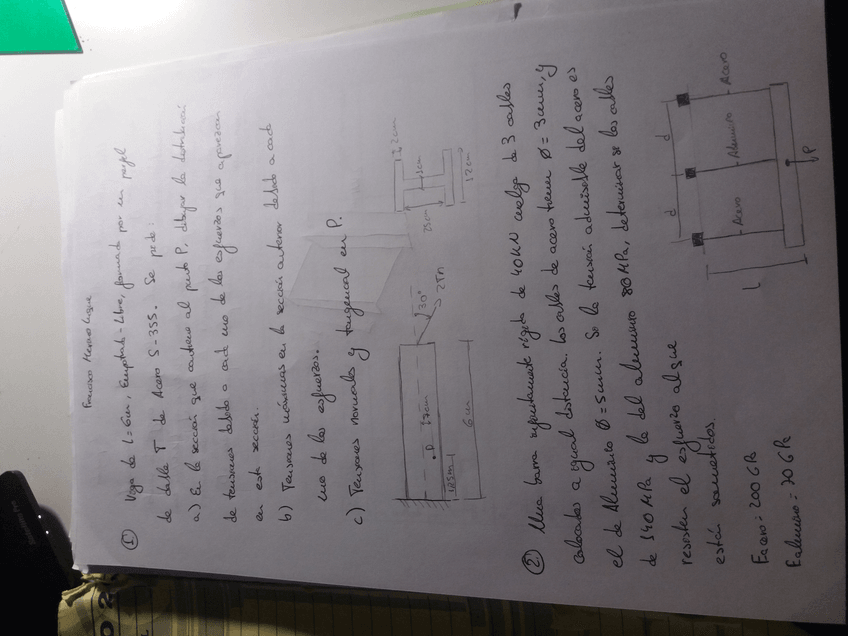 Francisco
① Viga de L=6m, Empotrada-Libre, formada por un perfil
de doble T de Acero S-355. Se pide:
a) En la sección que contiene al punto P, dibujar la distribución
de tensiones debido a cada uno de los esfuerzos que aparezcan
en esta sección.
b) Tensiones máximas en la sección anterior debido a cada
uno de los esfuerzos.
c) Tensiones normales y tangencial en P.
P
6m
30°
2Tn
2cm
12cm
② Una barra infinitamente rígida de 40kN cuelga de 3 cables
colocados a igual distancia. Los cables de acero tienen Ø=3mm, y
el de Aluminio Ø=5mm. Si la tensión admisible del acero es
de 140 MPa y la del aluminio 80 MPa, determinar si los cables
resisten el esfuerzo al que
están sometidos.
Eacero=200 GPa
Ealuminio=70 GPa
d
d
L
Acero
Aluminio
Acero
P